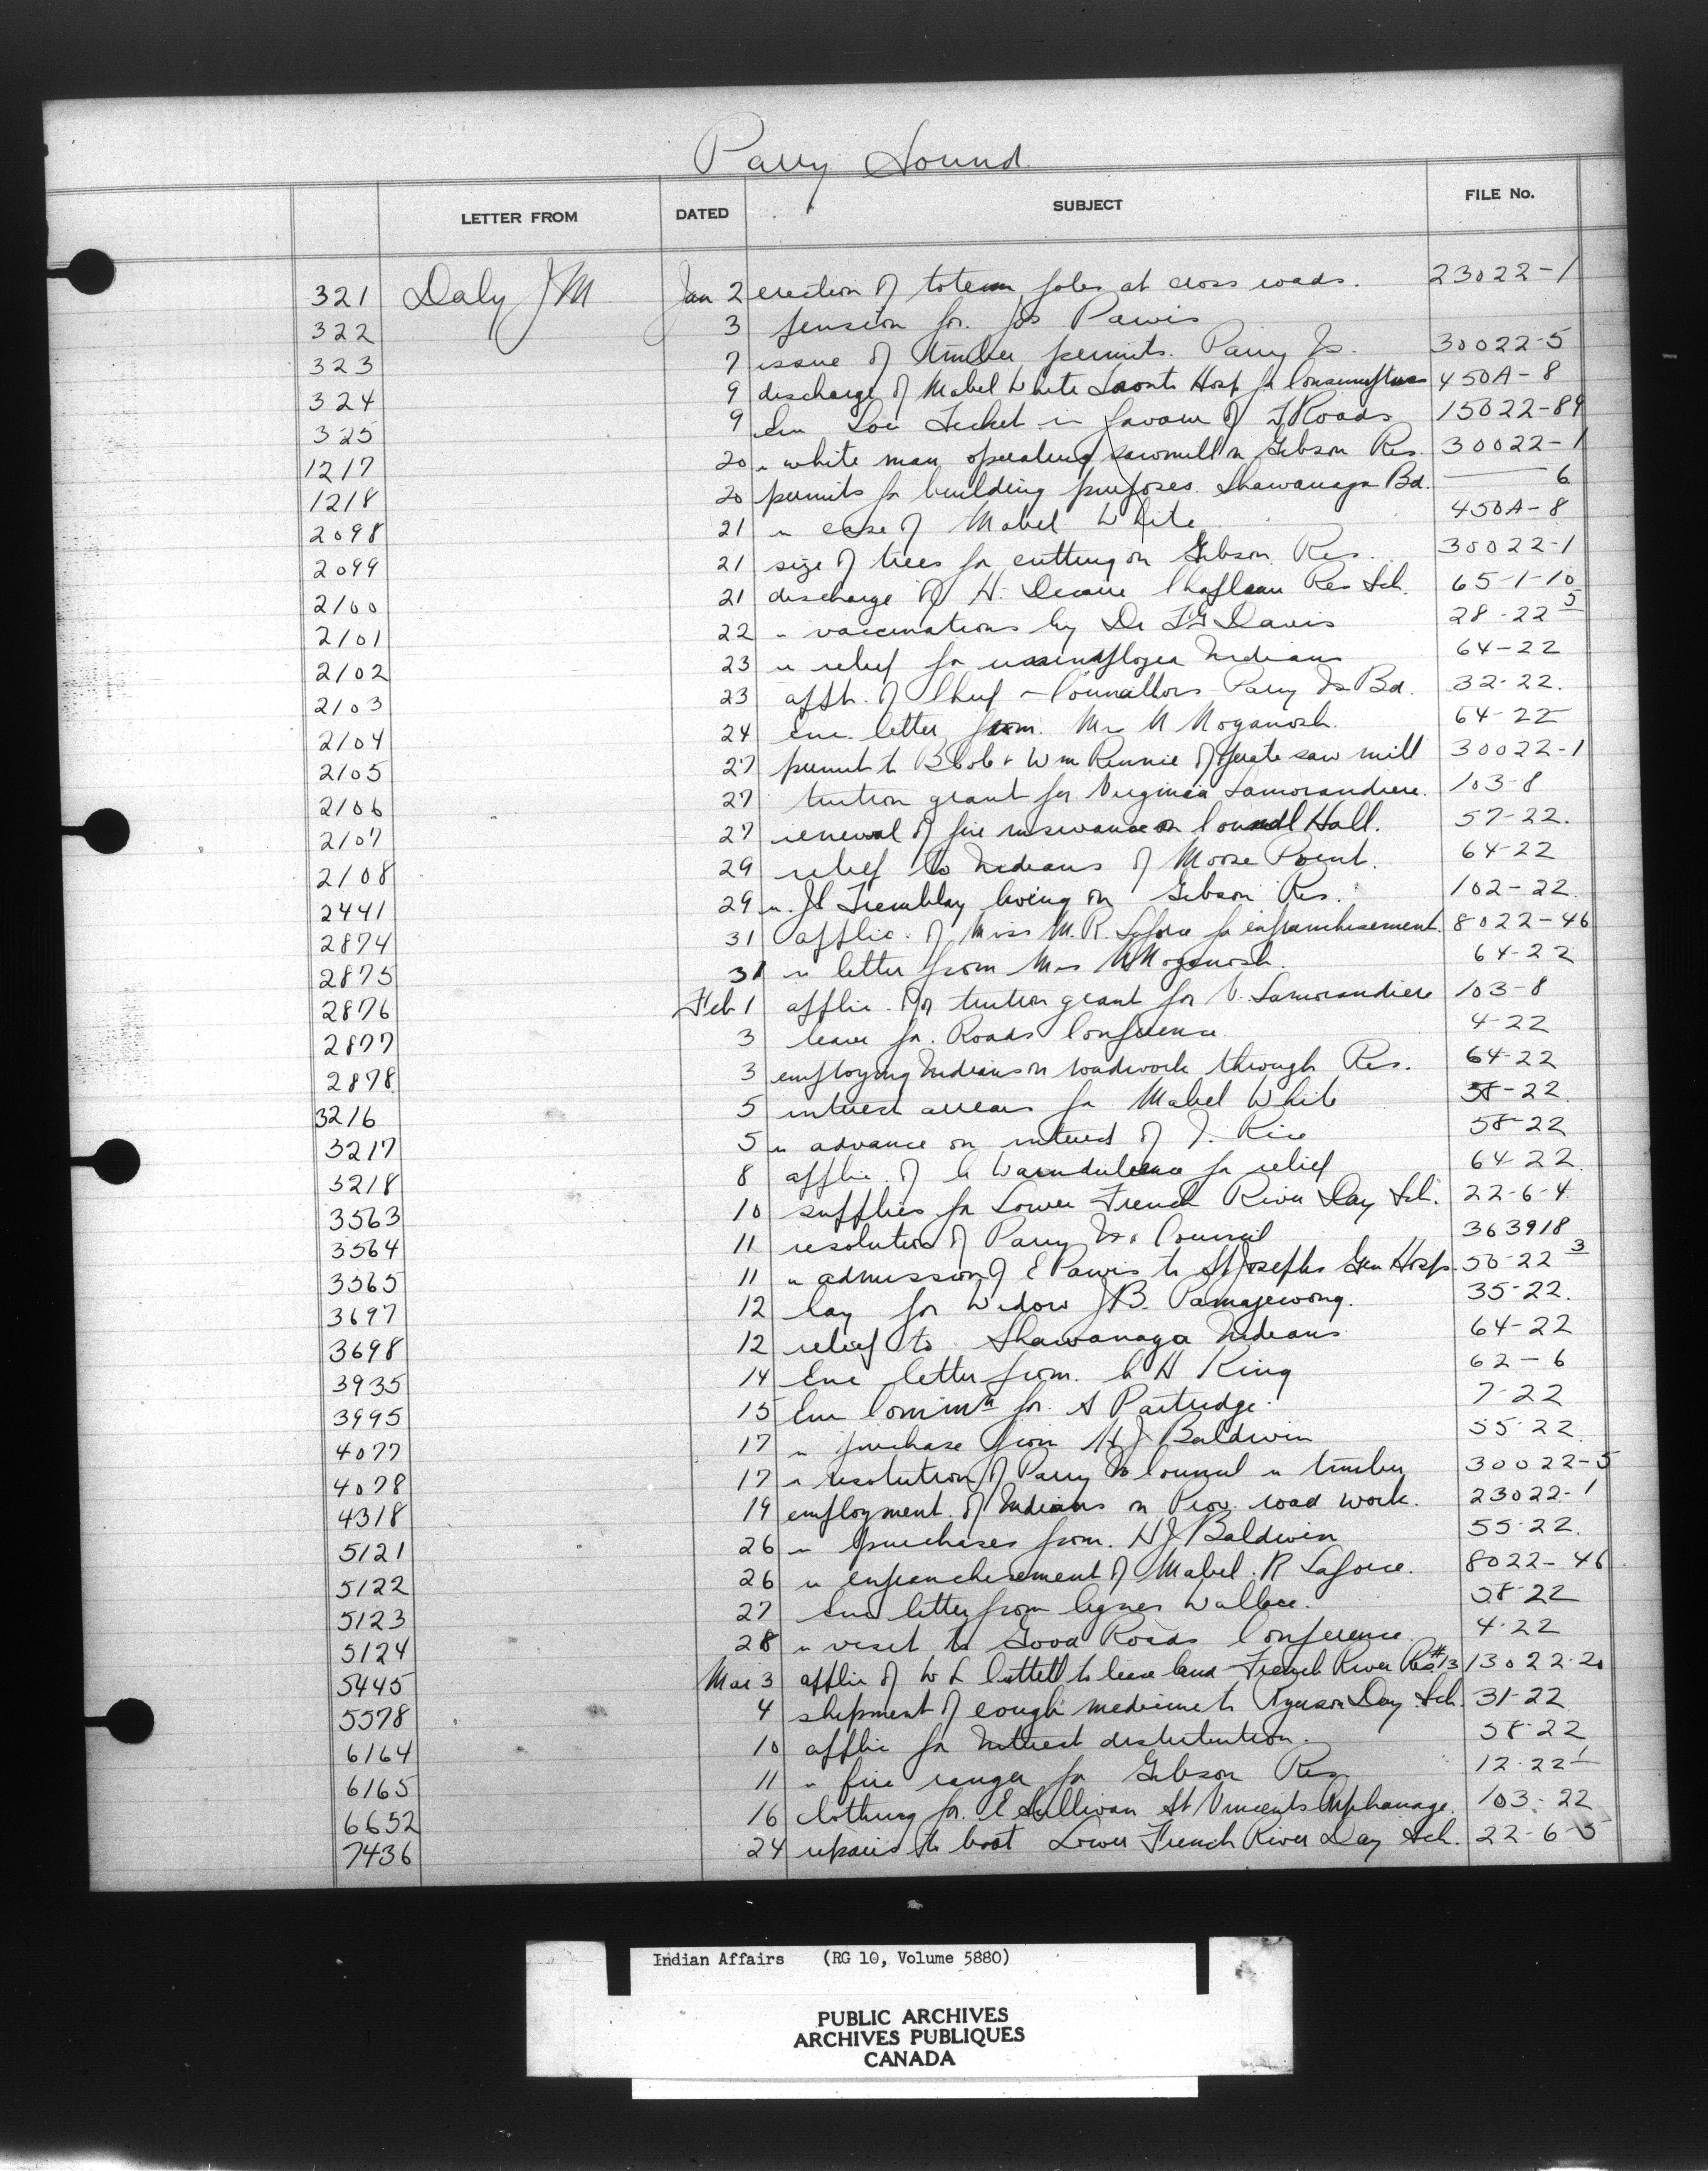 Parry Sound
LETTER FROM DATED SUBJECT FILE No.
321 Daly J M Jan 2 erection of totem poles at cross roads. 23022-1
322 3 pension for Jos Pawis
323 7 issue of timber permits. Parry Is. 30022-5
324 9 discharge of Mabel White Toronto Hosp for Consumptives 450A-8
325 9 Enc Loc Ticket in favour of F Roads 15022-89
1217 20 " white man operating sawmill on Gibson Res. 30022-1
1218 20 permits for building purposes. Shawanaga Bd. — 6
2098 21 " case of Mabel White 450A-8
2099 21 size of trees for cutting on Gibson Res. 30022-1
2100 21 discharge of H. Chapleau Res Sch. 65-1-10
2101 22 " vaccinations by Dr F G Davis 28-22 5
2102 23 " relief for unemployed Indians 64-22
2103 23 appt. of Chief - Councillors Parry Is Bd. 32-22.
2104 24 Enc. letter from Mrs N Noganosh. 64-22
2105 27 permit to B & Wm Rennie to operate saw mill 30022-1
2106 27 tuition grant for Virginia Lamorandiere. 103-8
2107 27 renewal of fire insurance on Council Hall. 57-22.
2108 29 relief to Indians of Moose Point. 64-22
2441 29 " Tremblay living on Gibson Res. 102-22
2874 31 applic. of Miss M. R. Laforce for enfranchisement. 8022-46
2875 31 " letter from Mrs N Noganosh. 64-22
2876 Feb 1 applic. for tuition grant for V. Lamorandiere 103-8
2877 3 leave for Roads Conference 4-22
2878 3 employing Indians on roadwork through Res. 64-22
3216 5 interest arrears for Mabel White 58-22
3217 5 " advance on interest of J. Rice 58-22
3218 8 applic. of for relief 64-22
3563 10 supplies for Lower French River Day Sch. 22-6-4
3564 11 resolution of Parry Is. Council 363918
3565 11 " admission of E Pawis to St Josephs Gen Hosp. 50-22 3
3697 12 hay for Widow J B. Pamajewong. 35-22.
3698 12 relief to Shawanaga Indians 64-22
3935 14 Enc letter from C H King 62-6
3995 15 Enc Commn for A Partridge 7-22
4077 17 " purchase from H J Baldwin 55-22
4078 17 " resolution of Parry Is Council " timber 30022-5
4318 19 employment of Indians on Prov. road work. 23022-1
5121 26 " purchases from H J Baldwin 55-22.
5122 26 " enfranchisement of Mabel. R Laforce. 8022-46
5123 27 Enc letter from Agnes Wallace. 58-22
5124 28 " visit to Good Roads Conference 4-22
5445 Mar 3 applic of W L to lease land French River Res #13 13022-20
5578 4 shipment of cough medicine to Ryerson Day Sch. 31-22
6164 10 applic for interest distribution. 58-22
6165 11 " fire ranger for Gibson Res. 12-22 1
6652 16 clothing for E Sullivan St Vincents Orphanage. 103-22
7436 24 repairs to boat Lower French River Day Sch. 22-6-5
Indian Affairs (RG 10, Volume 5880)
PUBLIC ARCHIVES
ARCHIVES PUBLIQUES
CANADA